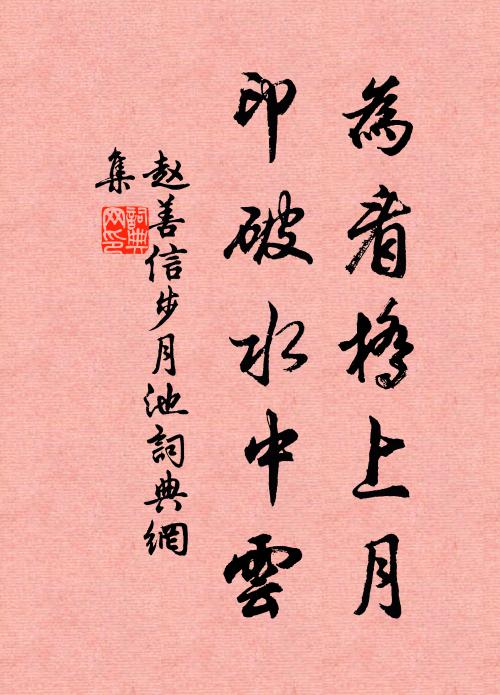 為看橋上月
印破水中雲
赵善信步月池詞典網
集
詞典
网印